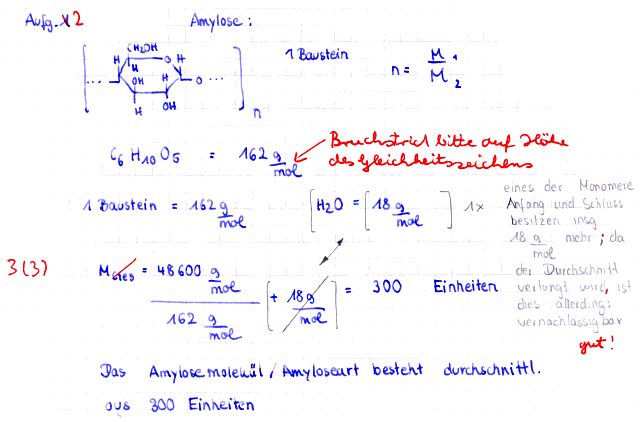 Aufg. 2 Amylose:
1 Baustein n = M1 / M2
CH2OH
H O H
H
... OH H O ...
H OH
n
C6H10O5 = 162 g/mol
Bruchstrich bitte auf Höhe
des Gleichheitszeichens
1 Baustein = 162 g/mol [H2O = [18 g/mol] 1x
eines der Monomere
Anfang und Schluss
besitzen insg
18 g/mol mehr; da
der Durchschnitt
verlangt wird, ist
dies allerdings
vernachlässigbar
gut!
3(3) Mges = 48600 g/mol / 162 g/mol [+ 18 g/mol] = 300 Einheiten
Das Amylosemolekül / Amyloseart besteht durchschnittl.
aus 300 Einheiten